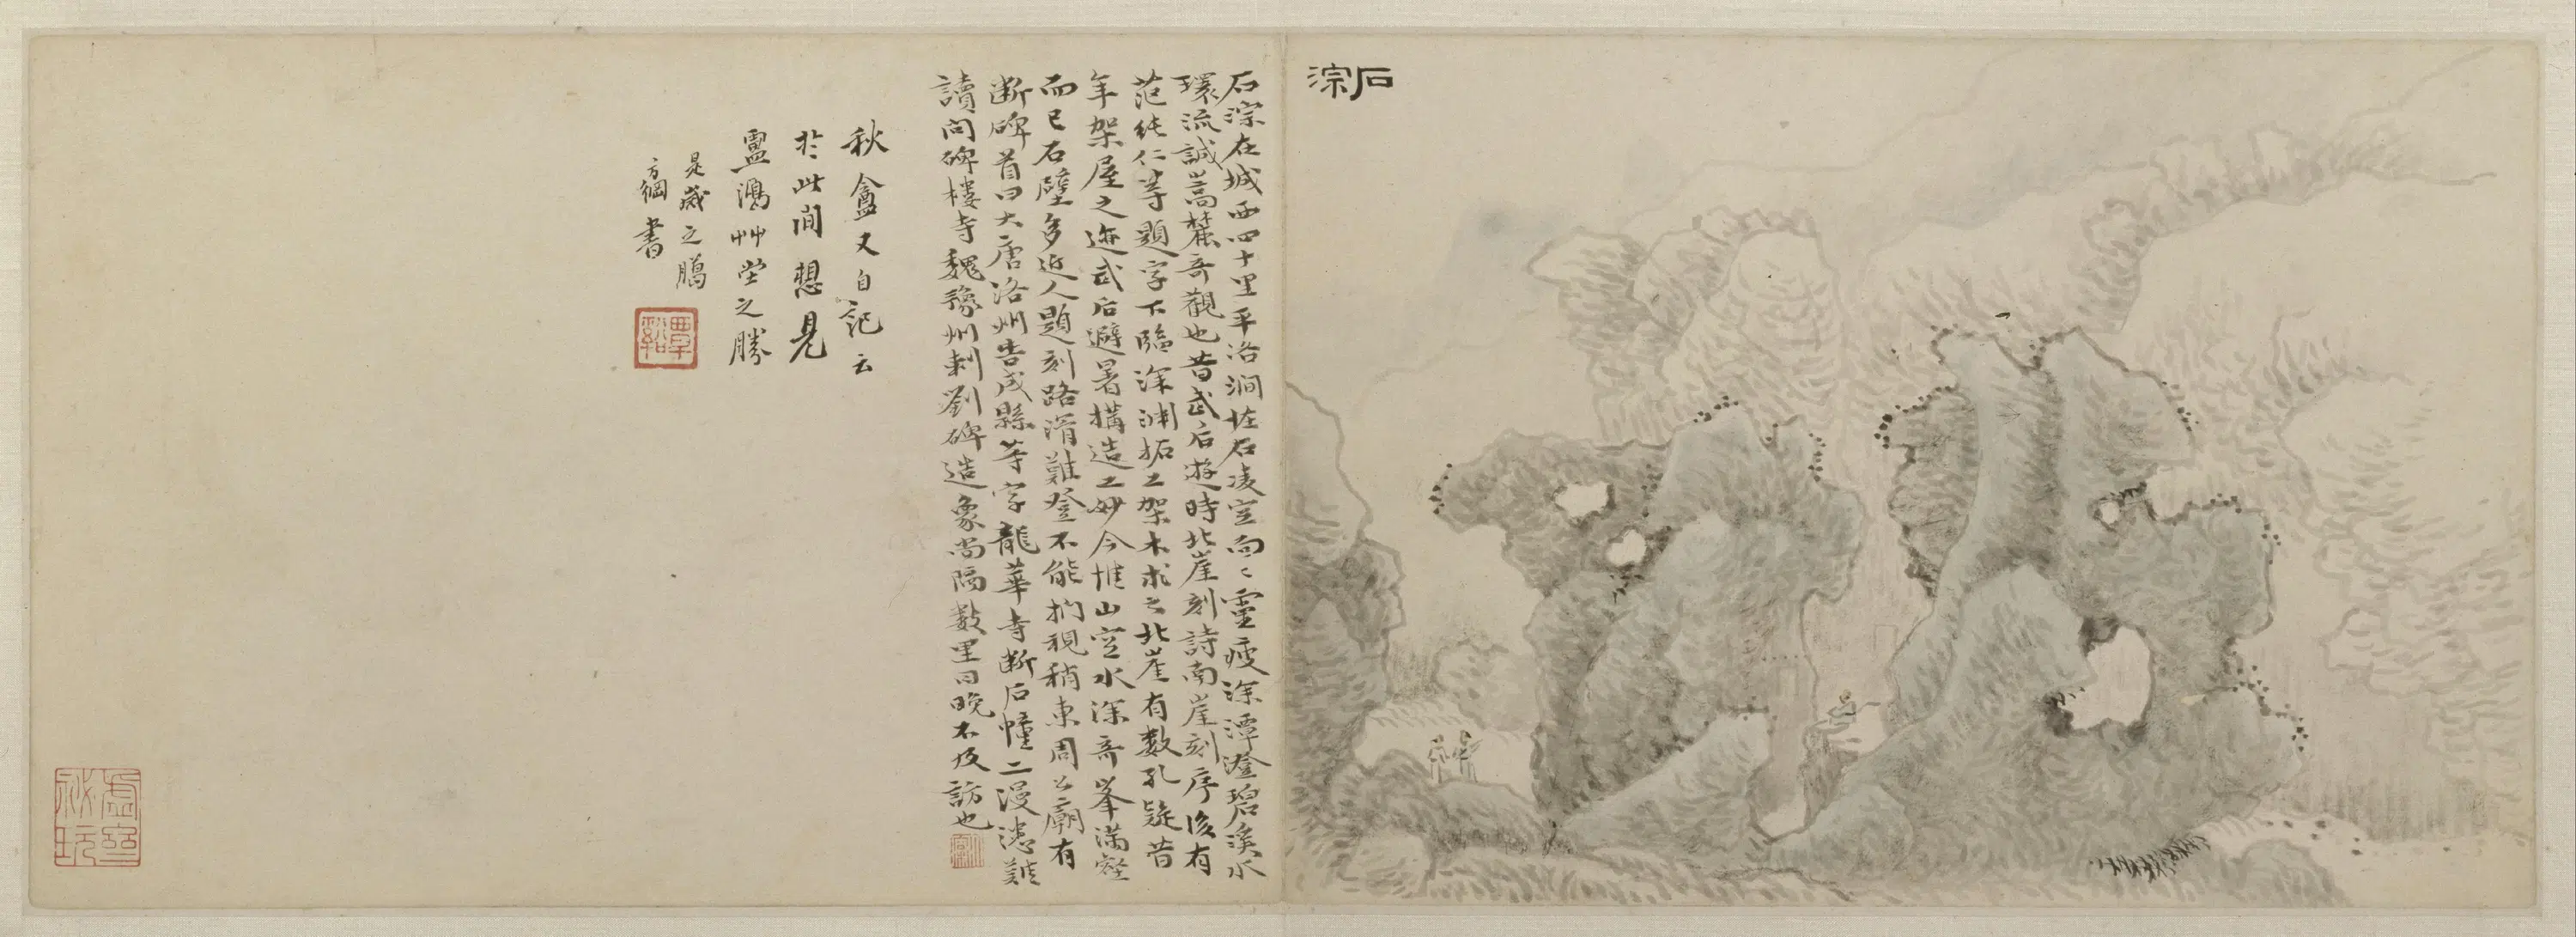 石淙
石淙在城西四十里平洛澗在石淩空面〻靈瘦深潭澄碧溪水
環流誠嵩麓奇觀也昔武后遊時北崖刻詩南崖刻序後有
范純仁等題字下臨深淵拓工架木求之北崖有數孔疑昔
年架屋之迹武后避暑構造工妙今惟山空水深奇峯滿壑
而已石壁多近人題刻路滑難登不能捫視稍東周公廟有
斷碑首曰大唐洛州告成縣等字龍華寺斷石幢二漫漶難
讀問碑樓寺魏豫州刺劉碑造象尚隔數里日晚不及訪也
秋盦又自記云
於此間想見
盧鴻艸堂之勝
是歲之臈
方綱書
覃谿